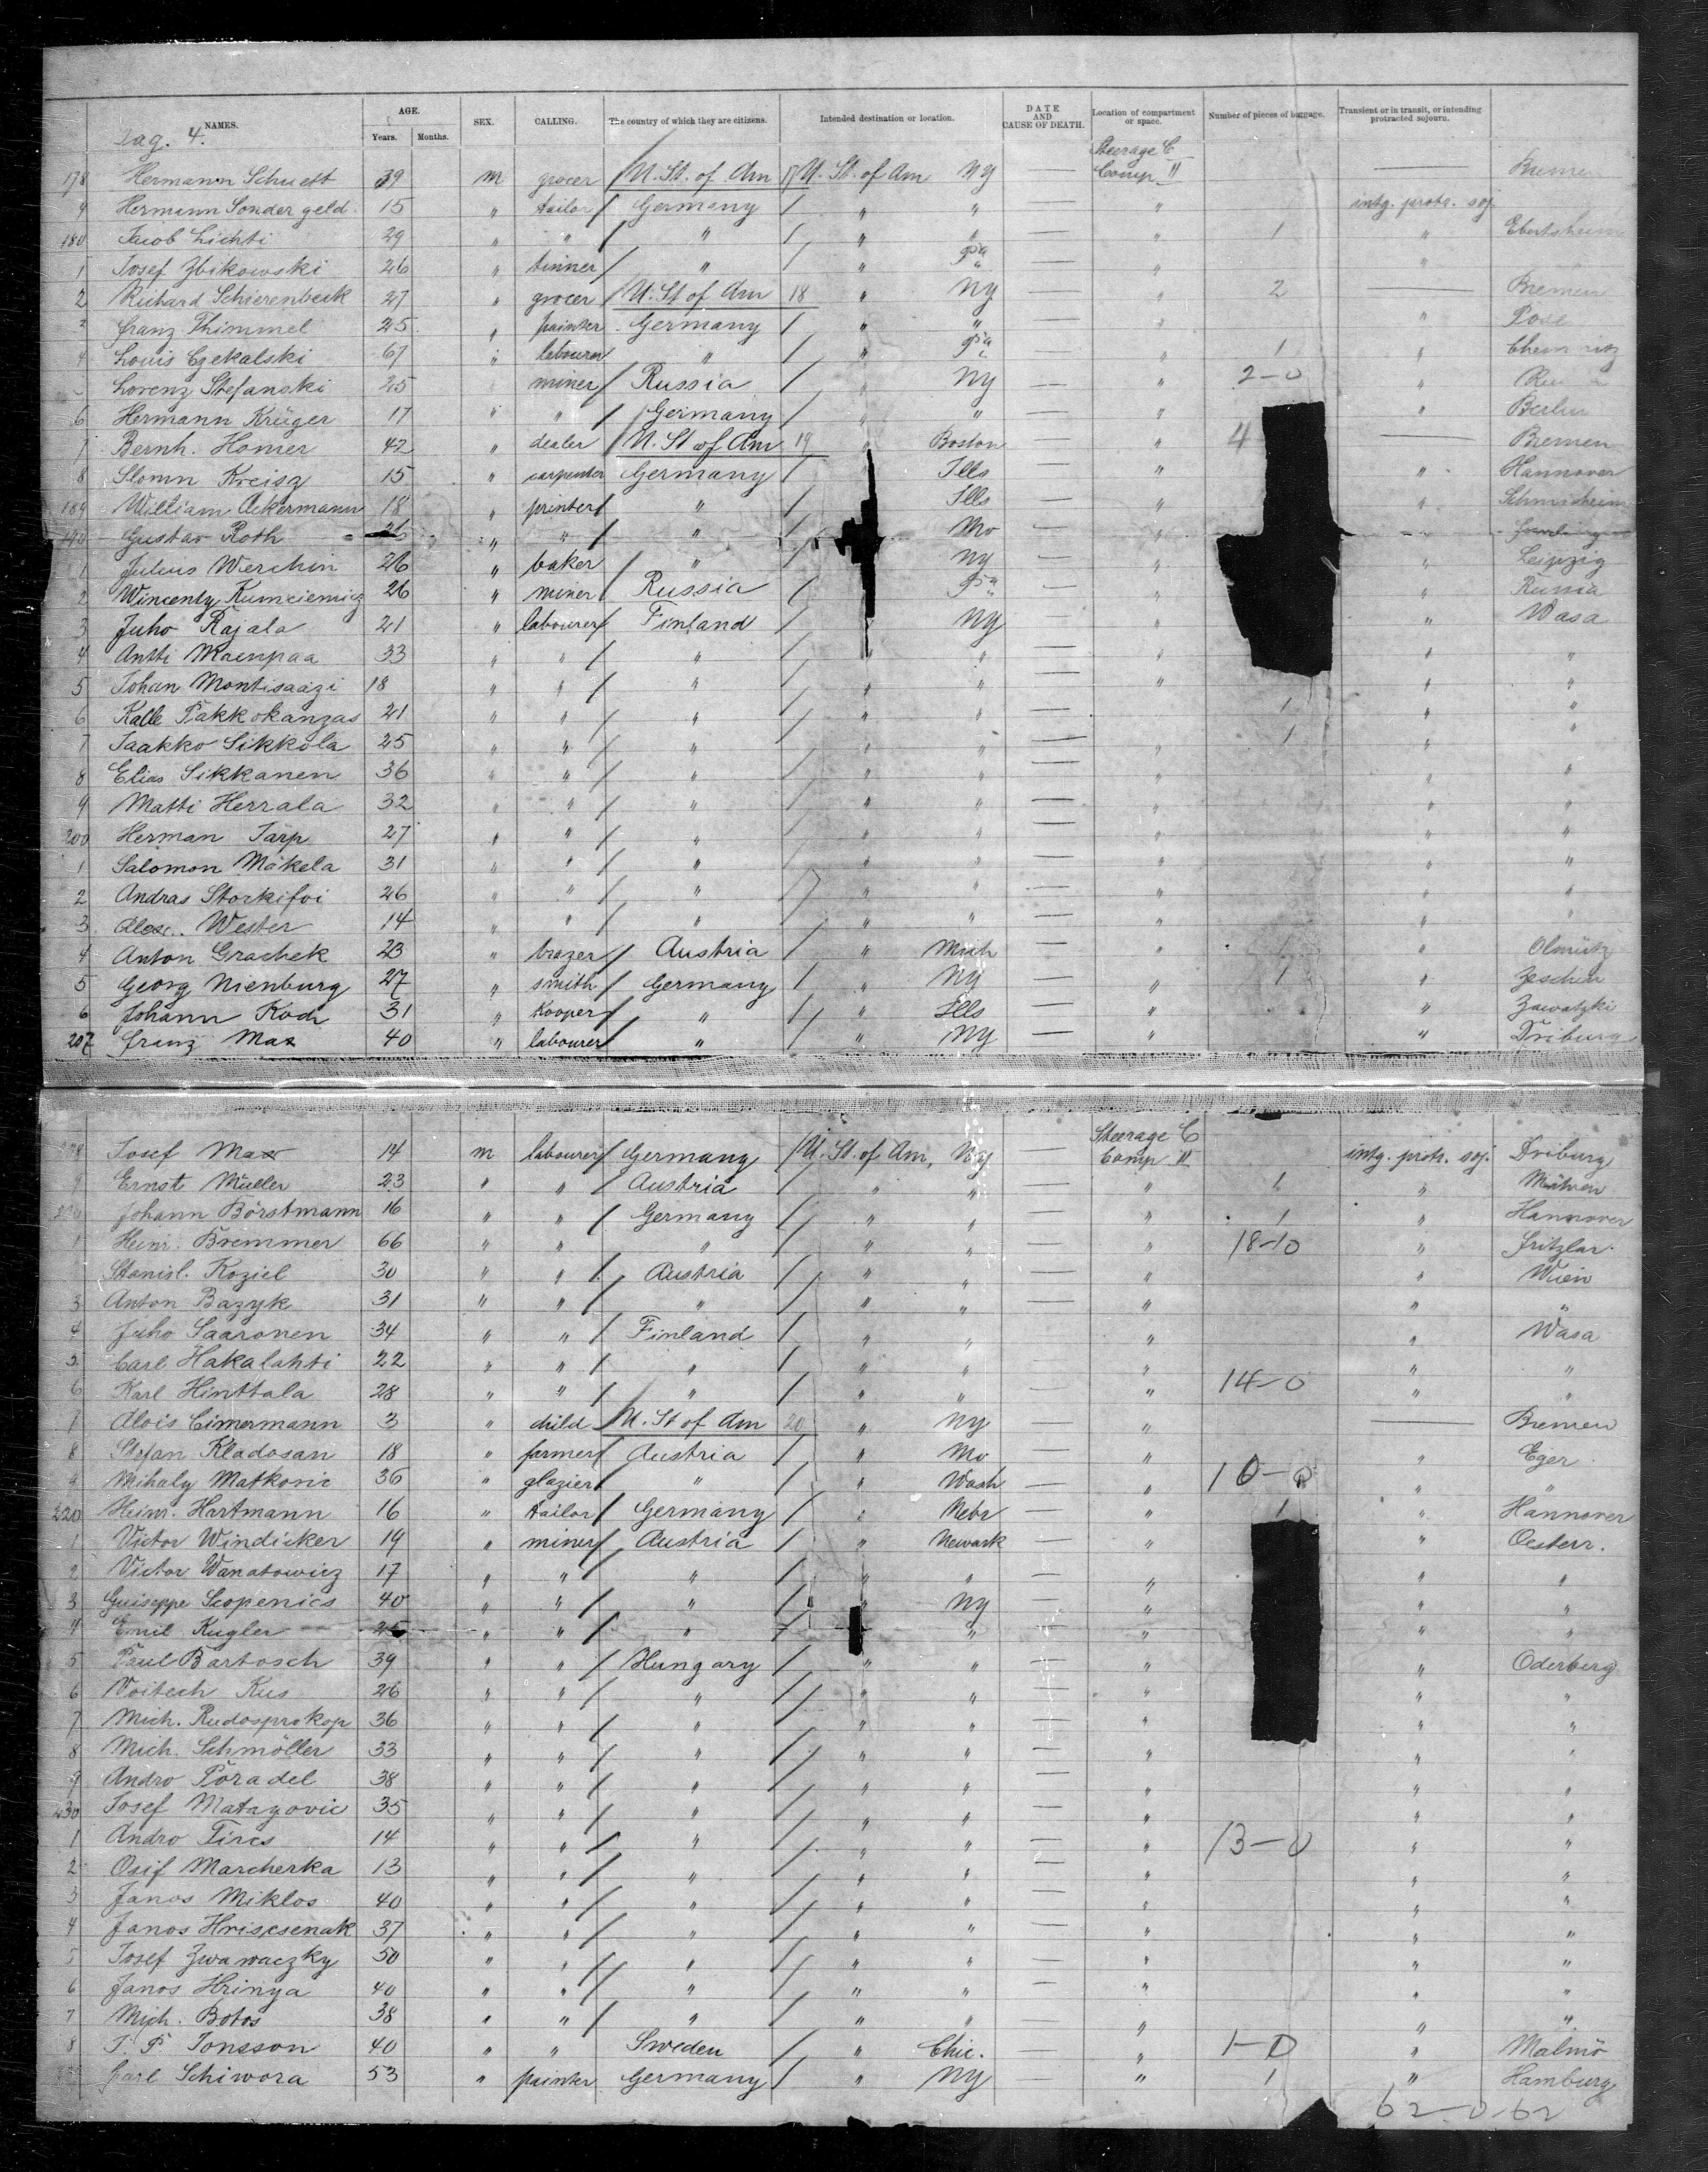 NAMES. AGE. Years. Months. SEX. CALLING. The country of which they are citizens. Intended destination or location. DATE AND CAUSE OF DEATH. Location of compartment or space. Number of pieces of baggage. Transient or in transit, or intending protracted sojourn.
Pag. 4. Steerage C
178 Hermann Schuett 39 m grocer U. St. of Am 17 U. St. of Am NY — Comp. II — Bremen
9 Hermann Sondergeld 15 " tailor Germany " " — " intg. protr. soj.
180 Jacob Lichti 29 " " " " " — " 1 " Ebertsheim
1 Josef Zbikowski 26 " tinner " " Pa — " "
2 Richard Schierenbeck 27 " grocer U. St of Am 18 " NY — " 2 — Bremen
3 Franz Thimmel 25 " painter Germany " " — " "
4 Louis Czekalski 67 " labourer " " Pa — " 1 " Chemnitz
5 Lorenz Stefanski 25 " miner Russia " NY — " 2-0 "
6 Hermann Krüger 17 " " Germany " " — " " Berlin
7 Bernh. Homer 42 " dealer U. St of Am 19 " Boston — " 4 — Bremen
8 Slomn Kreisg 15 " carpenter Germany " Ills — " " Hannover
189 William Ackermann 18 " printer " Ills — " "
190 Gustav Roth " " " Mo — " "
1 Julius Werchin 26 " baker " NY — " " Leipzig
2 Wincenty 26 " miner Russia Pa — " " Russia
3 Juho Rajala 21 " labourer Finland NY — " " Wasa
4 Antti Maenpaa 33 " " " " " — " " "
5 Johan Montisaazi 18 " " " " " — " " "
6 Kalle Pakkokangas 21 " " " " " — " 1 " "
7 Jaakko Sikkola 25 " " " " " — " 1 " "
8 Elias Sikkanen 36 " " " " " — " " "
9 Matti Herrala 32 " " " " " — " " "
200 Herman Tarp 27 " " " " " — " " "
1 Salomon Mäkela 31 " " " " " — " " "
2 Andras Storkifoi 26 " " " " " — " " "
3 Alex. Wester 14 " " " " " — " " "
4 Anton Grachek 23 " brazer Austria " Mich — " 1 " Olmütz
5 Georg Nienburg 27 " smith Germany " NY — " 1 "
6 Johann Koch 31 " Kooper " " Ills — " " Zawatzki
207 Franz Max 40 " labourer " " NY — " " Driburg
208 Josef Max 14 m labourer Germany U. St. of Am, NY — Steerage C Comp. II intg. protr. soj. Driburg
9 Ernst Müller 23 " " Austria " " — " 1 " Mähren
210 Johann Börstmann 16 " " Germany " " — " 1 " Hannover
1 Heinr. Bremmer 66 " " " " " — " 18-10 " Fritzlar
Stanisl. Koziel 30 " " Austria " " — " " Wien
3 Anton Bazyk 31 " " " " " — " " "
4 Juho Saaronen 34 " " Finland " " — " " Wasa
5 Carl Hakalahti 22 " " " " " — " " "
6 Karl Hinttala 28 " " " " " — " 14-0 " "
7 Alois Cimermann 3 " child U. St of Am 20 " NY — " — Bremen
8 Stefan Kladosan 18 " farmer Austria " Mo — " " Eger
9 Mihaly Matkovic 36 " glazier " " Wash — " 10-0 " "
220 Heinr. Hartmann 16 " tailor Germany " Nebr — " 1 " Hannover
1 Victor Windicker 19 " miner Austria " Newark — " " Oesterr.
2 Victor Wanatowicz 17 " " " " " — " " "
3 Guiseppe Scopenics 40 " " " " NY — " " "
4 Emil Kugler " " " " — " " "
5 Paul Bartosch 39 " " Hungary " " — " " Oderberg
6 Voitech Kus 26 " " " " " — " " "
7 Mich. Rudosprokop 36 " " " " " — " " "
8 Mich. Schmöller 33 " " " " " — " " "
9 Andro Poradel 38 " " " " " — " " "
230 Josef Matazovic 35 " " " " " — " " "
1 Andro Tircs 14 " " " " " — " 13-0 " "
2 Osif Marcherka 13 " " " " " — " " "
3 Janos Miklos 40 " " " " " — " " "
4 Janos Hriscsenak 37 " " " " " — " " "
5 Josef Zwawaczky 50 " " " " " — " " "
6 Janos Hrinya 40 " " " " " — " " "
7 Mich. Botos 38 " " " " " — " " "
8 J. P. Jonsson 40 " " Sweden " Chic. — " 1-0 " Malmö
Carl Schiwora 53 " painter Germany " NY — " 1 " Hamburg
62-0-62